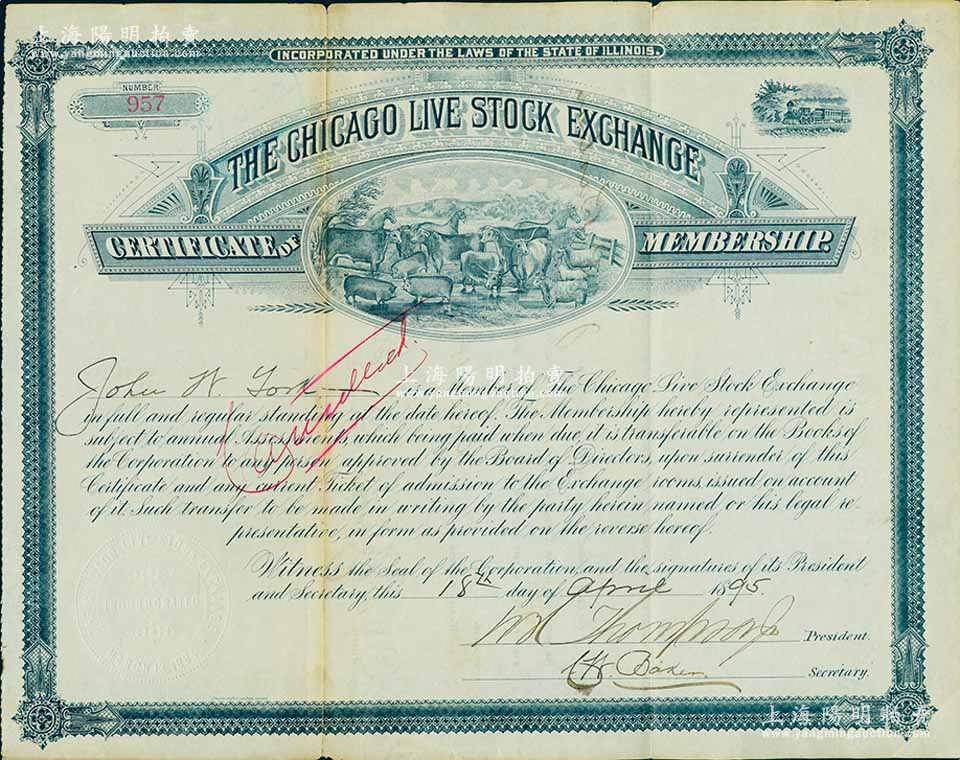 上海陽明拍卖
www.yangmingauction.com
INCORPORATED UNDER THE LAWS OF THE STATE OF ILLINOIS.
NUMBER
957
THE CHICAGO LIVE STOCK EXCHANGE
CERTIFICATE OF MEMBERSHIP.
上海陽明拍卖
www.yangmingauction.com
John W. is a Member of The Chicago Live Stock Exchange
Cancelled.
in full and regular standing at the date hereof. The Membership hereby represented is
subject to annual Assessments, which being paid when due, it is transferable on the Books of
the Corporation to any person approved by the Board of Directors, upon surrender of this
Certificate and any current Ticket of admission to the Exchange rooms, issued on account
of it. Such transfer to be made in writing by the party herein named or his legal re-
presentative, in form as provided on the reverse hereof.
Witness the Seal of the Corporation, and the signatures of its President
and Secretary, this 18th day of April 1895.
Wm Thompson Jr President.
C.W. Baker. Secretary.
INCORPORATED
上海陽明拍卖
www.yangmingauction.com